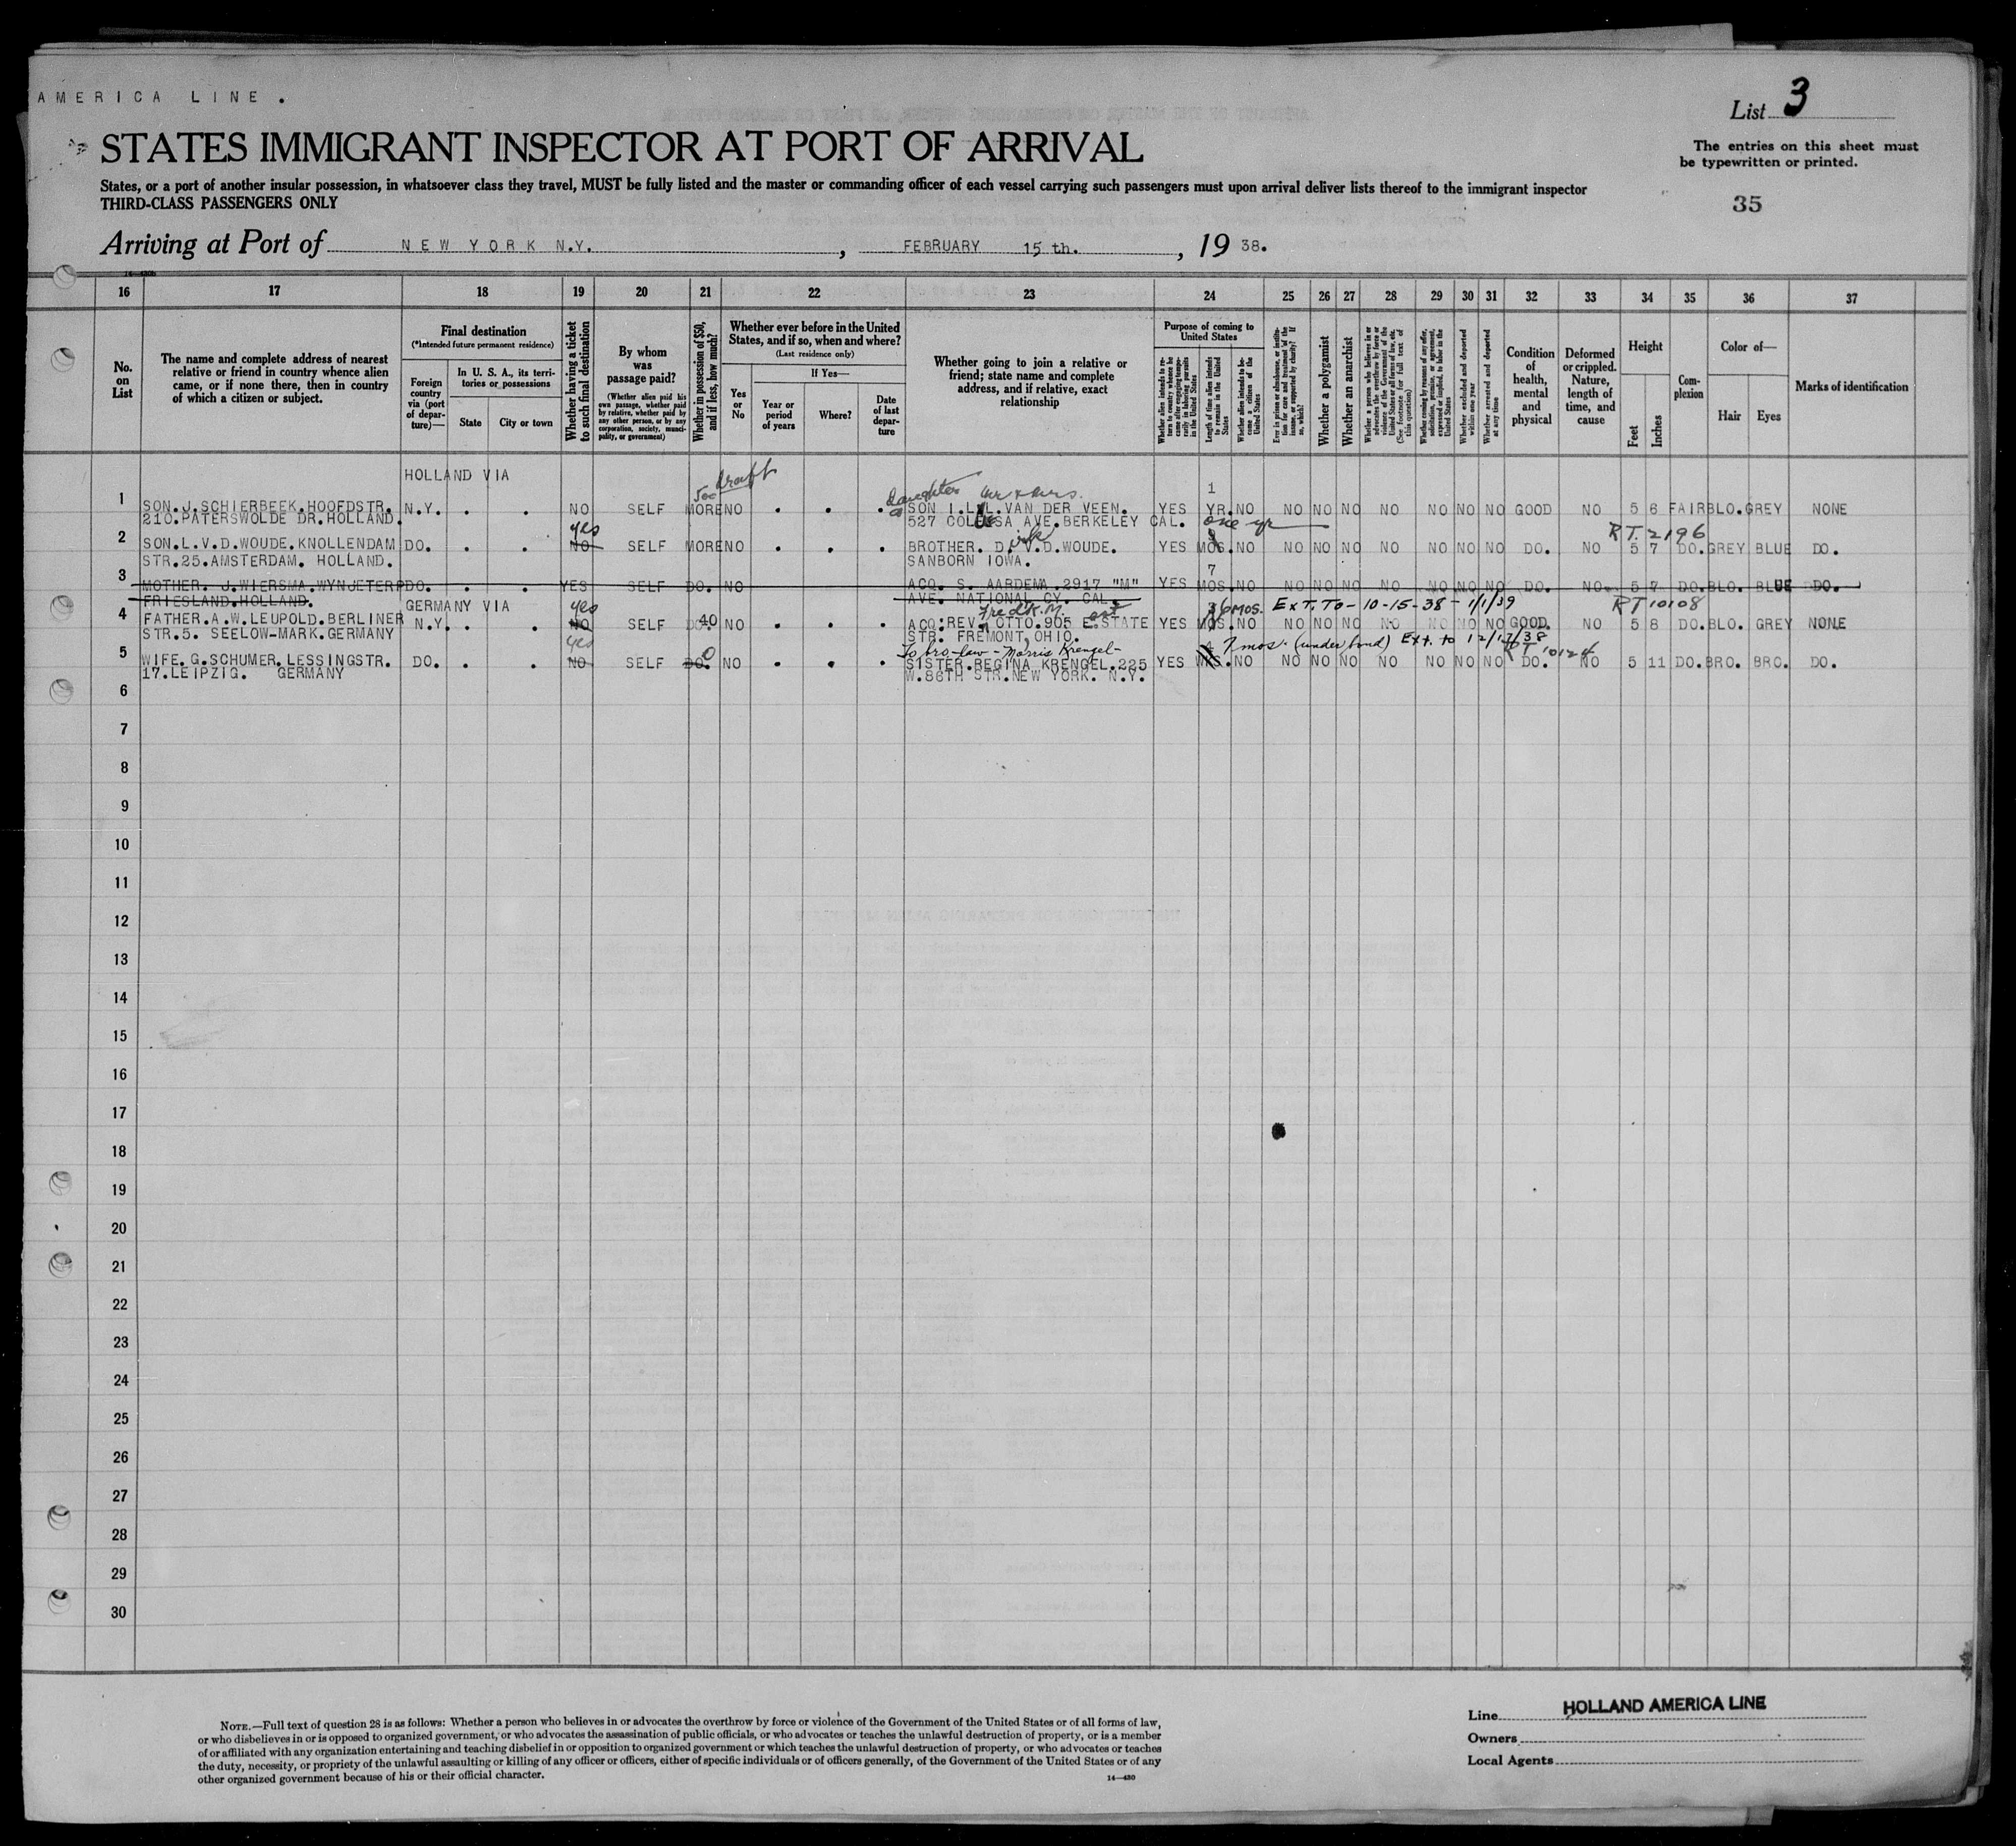 AMERICA LINE.
List 3
STATES IMMIGRANT INSPECTOR AT PORT OF ARRIVAL
The entries on this sheet must
be typewritten or printed.
States, or a port of another insular possession, in whatsoever class they travel, MUST be fully listed and the master or commanding officer of each vessel carrying such passengers must upon arrival deliver lists thereof to the immigrant inspector
THIRD-CLASS PASSENGERS ONLY
35
Arriving at Port of NEW YORK N.Y. , FEBRUARY 15 th. , 19 38.
16 17 18 19 20 21 22 23 24 25 26 27 28 29 30 31 32 33 34 35 36 37
No. on List
The name and complete address of nearest relative or friend in country whence alien came, or if none there, then in country of which a citizen or subject.
Final destination
(*Intended future permanent residence)
Foreign country via (port of departure)—
In U. S. A., its territories or possessions
State
City or town
Whether having a ticket to such final destination
By whom was passage paid?
(Whether alien paid his own passage, whether paid by relative, whether paid by any other person, or by any corporation, society, municipality, or government)
Whether in possession of $50, and if less, how much?
Whether ever before in the United States, and if so, when and where?
(Last residence only)
Yes or No
If Yes—
Year or period of years
Where?
Date of last departure
Whether going to join a relative or friend; state name and complete address, and if relative, exact relationship
Purpose of coming to United States
Whether alien intends to return to country whence he came after engaging temporarily in laboring pursuits in the United States
Length of time alien intends to remain in the United States
Whether alien intends to become a citizen of the United States
Ever in prison or almshouse, or institution for care and treatment of the insane, or supported by charity? If so, which?
Whether a polygamist
Whether an anarchist
Whether a person who believes in or advocates the overthrow by force or violence of the Government of the United States or all forms of law, etc. (See footnote for full text of this question)
Whether coming by reasons of any offer, solicitation, promise, or agreement, expressed or implied, to labor in the United States
Whether excluded and deported within one year
Whether arrested and deported at any time
Condition of health, mental and physical
Deformed or crippled. Nature, length of time, and cause
Height
Feet
Inches
Complexion
Color of—
Hair
Eyes
Marks of identification
HOLLAND VIA
500 draft
daughter Mr & Mrs.
1
1 SON.J.SCHIERBEEK.HOOFDSTR. N.Y. . . NO SELF MORE NO . . . SON I.L.VAN DER VEEN. YES YR. NO NO NO NO NO NO NO NO GOOD NO 5 6 FAIR BLO. GREY NONE
210.PATERSWOLDE DR.HOLLAND. 527 COLUSA AVE.BERKELEY CAL.
yes one yr RT. 2196
2 SON.L.V.D.WOUDE.KNOLLENDAM DO. . . NO SELF MORE NO . . . BROTHER. D. V.D.WOUDE. YES MOS. NO NO NO NO NO NO NO NO DO. NO 5 7 DO. GREY BLUE DO.
STR.25.AMSTERDAM. HOLLAND. SANBORN IOWA.
7
3 MOTHER. J.WIERSMA.WYNJETERP DO. . . YES SELF DO. NO ACQ. S. AARDEMA.2917 "M" YES MOS. NO NO NO NO NO NO NO NO DO. NO. 5 7 DO. BLO. BLUE DO.
FRIESLAND.HOLLAND. AVE. NATIONAL CY. CAL.
GERMANY VIA yes Fred K.M. 6 MOS. Ext. To - 10-15-38 - 1/1/39 RT 10108
4 FATHER.A.W.LEUPOLD.BERLINER N.Y. . . NO SELF DO. 40 NO . . . ACQ:REV. OTTO.905 E.STATE YES MOS. NO NO NO NO NO NO NO NO GOOD. NO 5 8 DO. BLO. GREY NONE
STR.5. SEELOW-MARK.GERMANY STR. FREMONT,OHIO.
yes To bro-law - Morris Krengel - 7 mos. (under bond) Ext. to 12/17/38 RT 10124
5 WIFE. G.SCHUMER. LESSINGSTR. DO. . . NO SELF DO. 0 NO . . . SISTER.REGINA KRENGEL.225 YES NO NO NO NO NO NO NO NO DO. NO 5 11 DO. BRO. BRO. DO.
17.LEIPZIG. GERMANY W.86TH STR.NEW YORK. N.Y.
6
7
8
9
10
11
12
13
14
15
16
17
18
19
20
21
22
23
24
25
26
27
28
29
30
NOTE.—Full text of question 28 is as follows: Whether a person who believes in or advocates the overthrow by force or violence of the Government of the United States or of all forms of law,
or who disbelieves in or is opposed to organized government, or who advocates the assassination of public officials, or who advocates or teaches the unlawful destruction of property, or is a member
of or affiliated with any organization entertaining and teaching disbelief in or opposition to organized government or which teaches the unlawful destruction of property, or who advocates or teaches
the duty, necessity, or propriety of the unlawful assaulting or killing of any officer or officers, either of specific individuals or of officers generally, of the Government of the United States or of any
other organized government because of his or their official character.
14—430
Line HOLLAND AMERICA LINE
Owners
Local Agents